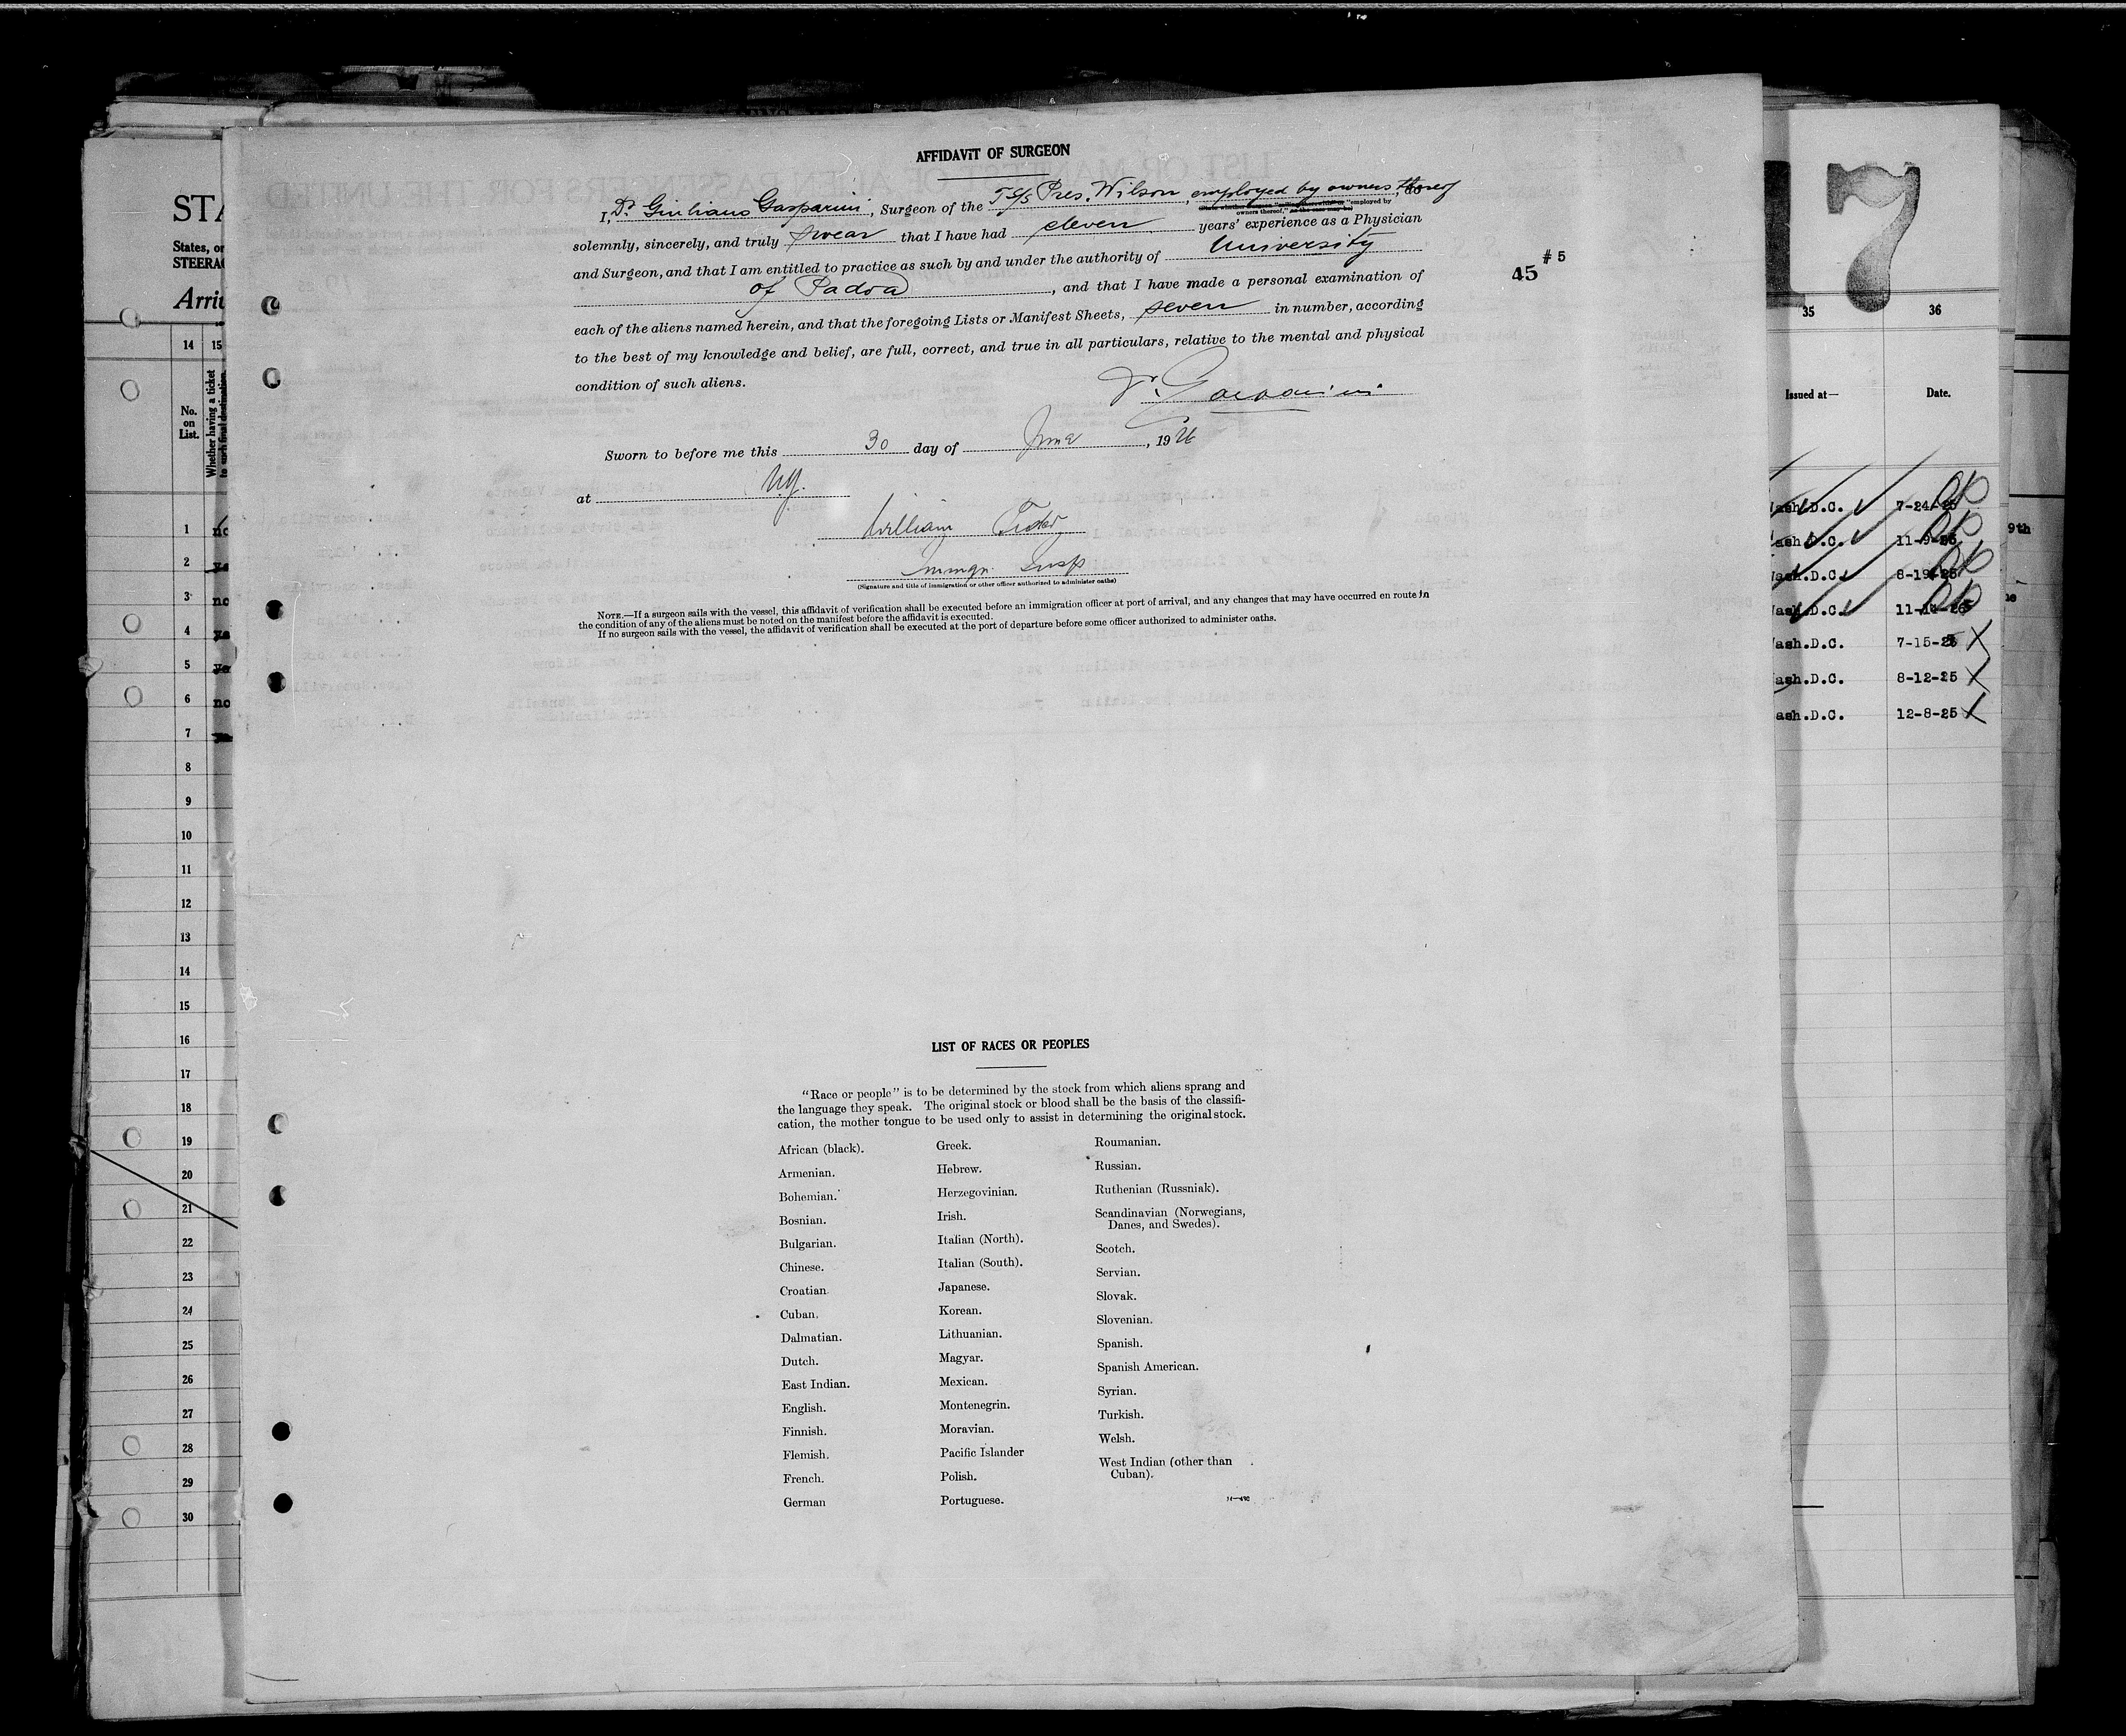 AFFIDAVIT OF SURGEON
I, Dr Giuliano Gasparini, Surgeon of the TSS Pres. Wilson, employed by owners thereof, do
owners thereof," as the case may be)
solemnly, sincerely, and truly swear that I have had eleven years' experience as a Physician
and Surgeon, and that I am entitled to practice as such by and under the authority of University
of Padova, and that I have made a personal examination of
each of the aliens named herein, and that the foregoing Lists or Manifest Sheets, seven in number, according
to the best of my knowledge and belief, are full, correct, and true in all particulars, relative to the mental and physical
condition of such aliens.
Dr. Gasparini
Sworn to before me this 30 day of June, 1926
at N.Y.
William
Immgr. Insp
(Signature and title of immigration or other officer authorized to administer oaths)
NOTE.—If a surgeon sails with the vessel, this affidavit of verification shall be executed before an immigration officer at port of arrival, and any changes that may have occurred en route in
the condition of any of the aliens must be noted on the manifest before the affidavit is executed.
If no surgeon sails with the vessel, the affidavit of verification shall be executed at the port of departure before some officer authorized to administer oaths.
45 #5
LIST OF RACES OR PEOPLES
"Race or people" is to be determined by the stock from which aliens sprang and
the language they speak. The original stock or blood shall be the basis of the classifi-
cation, the mother tongue to be used only to assist in determining the original stock.
African (black).
Armenian.
Bohemian.
Bosnian.
Bulgarian.
Chinese.
Croatian.
Cuban.
Dalmatian.
Dutch.
East Indian.
English.
Finnish.
Flemish.
French.
German
Greek.
Hebrew.
Herzegovinian.
Irish.
Italian (North).
Italian (South).
Japanese.
Korean.
Lithuanian.
Magyar.
Mexican.
Montenegrin.
Moravian.
Pacific Islander
Polish.
Portuguese.
Roumanian.
Russian.
Ruthenian (Russniak).
Scandinavian (Norwegians,
Danes, and Swedes).
Scotch.
Servian.
Slovak.
Slovenian.
Spanish.
Spanish American.
Syrian.
Turkish.
Welsh.
West Indian (other than
Cuban).
STA
States, or
STEERAG
Arri
14 15
No.
on
List.
Whether having a ticket
to such final destination.
1 no
2 ye
3 no
4 ye
5 ye
6 no
7
8
9
10
11
12
13
14
15
16
17
18
19
20
21
22
23
24
25
26
27
28
29
30
17
35 36
Issued at— Date.
ash.D.C. 7-24-25 OK
ash.D.C. 11-9-25 OK
ash.D.C. 8-19-25 OK
ash.D.C. 11-14-25 OK
ash.D.C. 7-15-25 X
ash.D.C. 8-12-25 X
ash.D.C. 12-8-25 X
9th